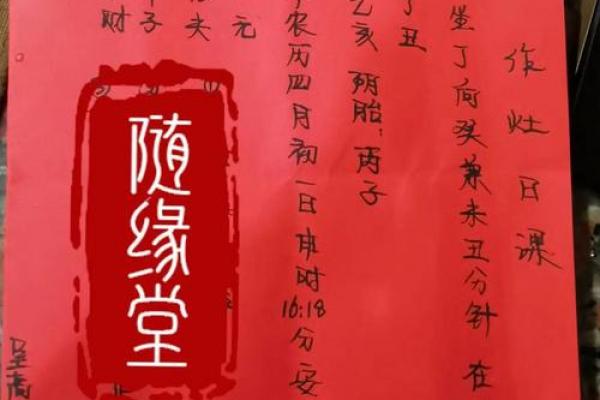 作灶日课
坐丁向癸兼未丑分针 在
丁丑
乙亥 阴胎:丙子
农历四月初一日申时16:18分 安
元
夫
子
财
呈高
随缘堂